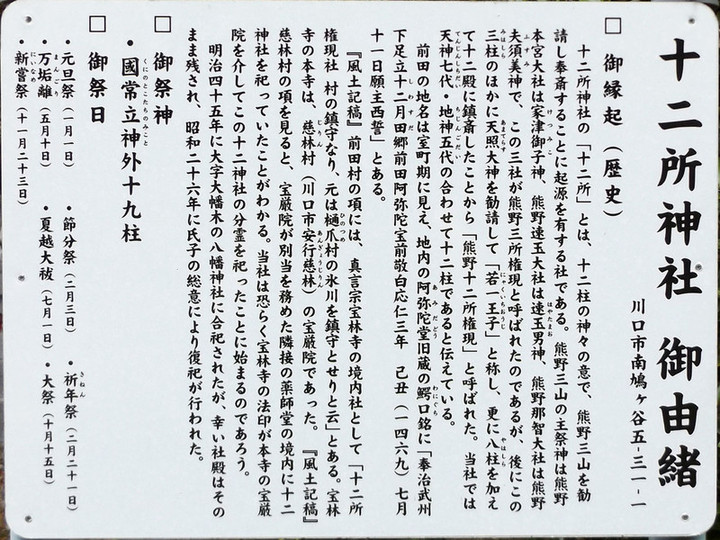 十二所神社 御由緒
川口市南鳩ヶ谷五-三一-一
□ 御縁起(歴史)
十二所神社の「十二所」とは、十二柱の神々の意で、熊野三山を勧
請し奉斎することに起源を有する社である。熊野三山の主祭神は熊野
本宮大社は家津御子神、熊野速玉大社は速玉男神、熊野那智大社は熊野
夫須美神で、この三社が熊野三所権現と呼ばれたのであるが、後にこの
三柱のほかに天照大神を勧請して「若一王子」と称し、更に八柱を加え
て十二殿に鎮斎したことから「熊野十二所権現」と呼ばれた。当社では
天神七代・地神五代の合わせて十二柱であると伝えている。
前田の地名は室町期に見え、地内の阿弥陀堂旧蔵の鰐口銘に「奉治武州
下足立十二月田郷前田阿弥陀宝前敬白応仁三年 己丑(一四六九)七月
十一日願主西誓」とある。
『風土記稿』前田村の項には、真言宗宝林寺の境内社として「十二所
権現社 村の鎮守なり、元は樋爪村の氷川を鎮守とせりと云」とある。宝林
寺の本寺は、慈林村(川口市安行慈林)の宝厳院であった。『風土記稿』
慈林村の項を見ると、宝厳院が別当を務めた隣接の薬師堂の境内に十二
神社を祀っていたことがわかる。当社は恐らく宝林寺の法印が本寺の宝厳
院を介してこの十二神社の分霊を祀ったことに始まるのであろう。
明治四十五年に大字大幡木の八幡神社に合祀されたが、幸い社殿はその
まま残され、昭和二十六年に氏子の総意により復祀が行われた。
□ 御祭神
・國常立神外十九柱
□ 御祭日
・元旦祭(一月一日) ・節分祭(二月三日) ・祈年祭(二月二十一日)
・万垢離(五月十日) ・夏越大祓(七月一日) ・大祭(十月十五日)
・新嘗祭(十一月二十三日)